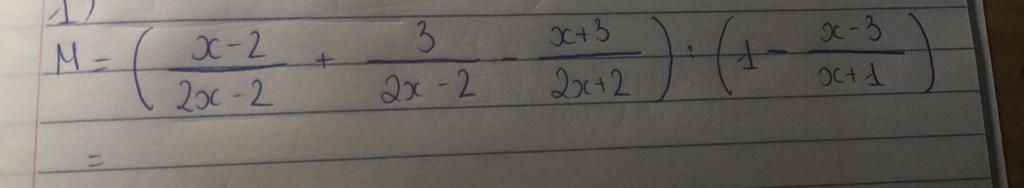 1)
M = ( (x-2)/(2x-2) + 3/(2x-2) - (x+3)/(2x+2) ) : ( 1 - (x-3)/(x+1) )
=